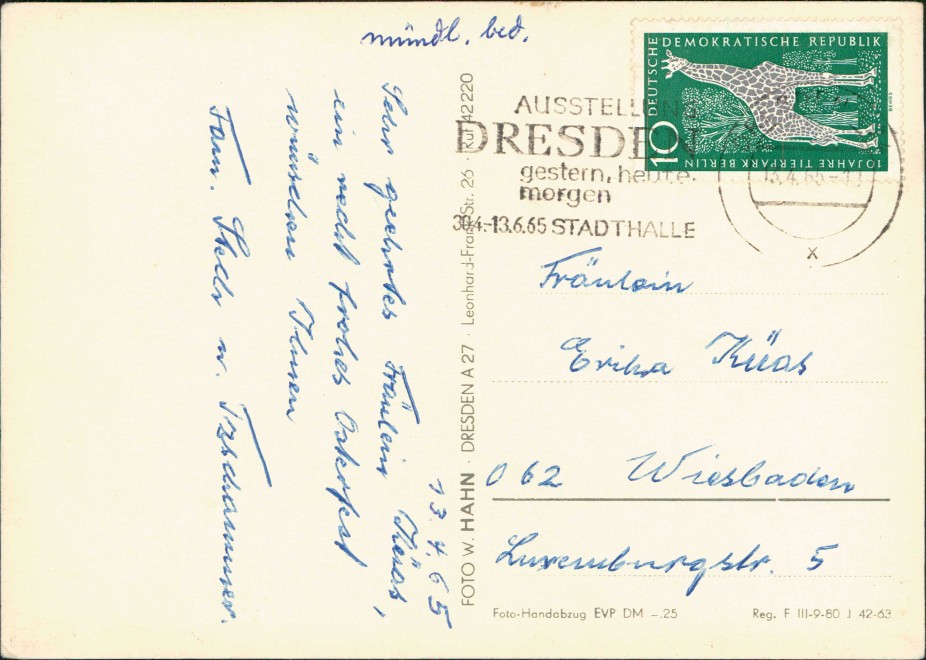 mündl. bed.
13.4.65
Sehr geehrtes Fräulein Küas,
ein recht frohes Osterfest
wünschen Ihnen
Fam. Stelb u. Tzschammer.
FOTO W. HAHN · DRESDEN A 27 · Leonhard-Frank-Str. 26 · Ruf 42220
DEUTSCHE DEMOKRATISCHE REPUBLIK
10
10 JAHRE TIERPARK BERLIN
AUSSTELLUNG
DRESDEN
gestern, heute,
morgen
30.4.-13.6.65 STADTHALLE
13.4.65
x
Fräulein
Erika Küas
062 Wiesbaden
Luxemburgstr. 5
Foto-Handabzug EVP DM -.25
Reg. F III-9-80 J 42-63